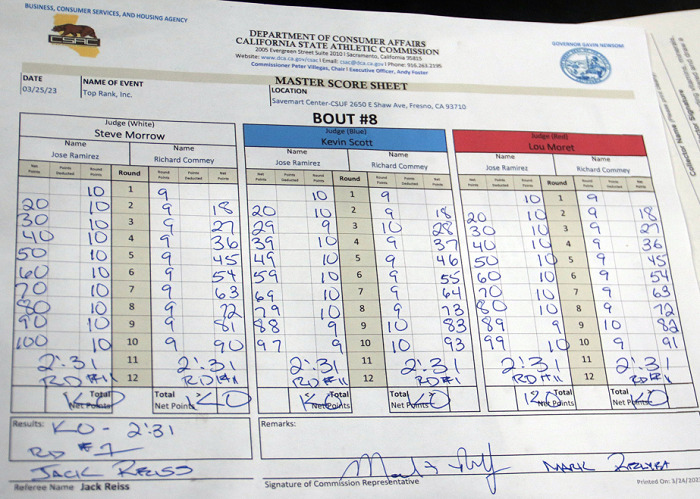 BUSINESS, CONSUMER SERVICES, AND HOUSING AGENCY
CSAC
DEPARTMENT OF CONSUMER AFFAIRS
CALIFORNIA STATE ATHLETIC COMMISSION
2005 Evergreen Street Suite 2010 I Sacramento, California 95815
Website: www.dca.ca.gov/csac I Email: csac@dca.ca.gov I Phone: 916.263.2195
Commissioner Peter Villegas, Chair I Executive Officer, Andy Foster
GOVERNOR GAVIN NEWSOM
MASTER SCORE SHEET
DATE NAME OF EVENT LOCATION
03/25/23 Top Rank, Inc. Savemart Center-CSUF 2650 E Shaw Ave, Fresno, CA 93710
BOUT #8
Judge (White) Judge (Blue) Judge (Red)
Steve Morrow Kevin Scott Lou Moret
Name Name Name Name Name Name
Jose Ramirez Richard Commey Jose Ramirez Richard Commey Jose Ramirez Richard Commey
Net Points Points Deducted Round Points Round Round Points Points Deducted Net Points Net Points Points Deducted Round Points Round Round Points Points Deducted Net Points Net Points Points Deducted Round Points Round Round Points Points Deducted Net Points
10 1 9 10 1 9 10 1 9
20 10 2 9 18 20 10 2 9 18 20 10 2 9 18
30 10 3 9 27 29 9 3 10 28 30 10 3 9 27
40 10 4 9 36 39 10 4 9 37 40 10 4 9 36
50 10 5 9 45 49 10 5 9 46 50 10 5 9 45
60 10 6 9 54 59 10 6 9 55 60 10 6 9 54
70 10 7 9 63 69 10 7 9 64 70 10 7 9 63
80 10 8 9 72 79 10 8 9 73 80 10 8 9 72
90 10 9 9 81 88 9 9 10 83 89 9 9 10 82
100 10 10 9 90 97 9 10 10 93 99 10 10 9 91
2:31 11 2:31 2:31 11 2:31 2:31 11 2:31
RD #11 12 RD #11 RD #11 12 RD #11 RD #11 12 RD #11
KO Total Net Points Total Net Points KO KO Total Net Points Total Net Points KO KO Total Net Points Total Net Points KO
Results: KO - 2:31 Remarks:
RD #
JACK REISS
Referee Name Jack Reiss
MARK
Signature of Commission Representative
Printed On: 3/24/202